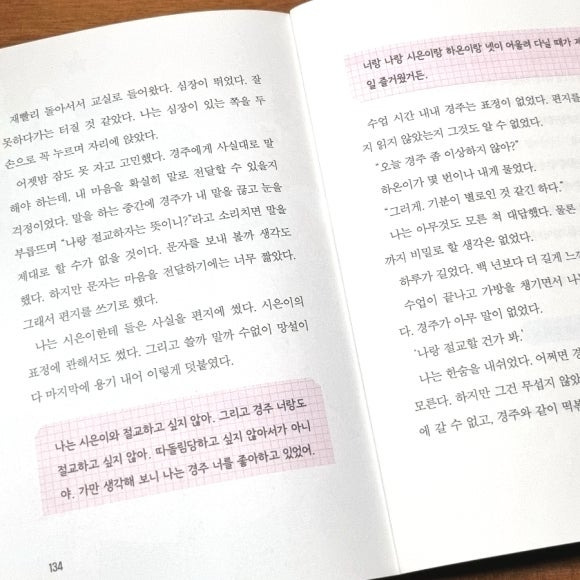 재빨리 돌아서서 교실로 들어왔다. 심장이 뛰었다. 잘
못하다가는 터질 것 같았다. 나는 심장이 있는 쪽을 두
손으로 꼭 누르며 자리에 앉았다.
어젯밤 잠도 못 자고 고민했다. 경주에게 사실대로 말
해야 하는데, 내 마음을 확실히 말로 전달할 수 있을지
걱정이었다. 말을 하는 중간에 경주가 내 말을 끊고 눈을
부릅뜨며 "나랑 절교하자는 뜻이니?"라고 소리치면 말을
제대로 할 수가 없을 것이다. 문자를 보내 볼까 생각도
했다. 하지만 문자는 마음을 전달하기에는 너무 짧았다.
그래서 편지를 쓰기로 했다.
나는 시은이한테 들은 사실을 편지에 썼다. 시은이의
표정에 관해서도 썼다. 그리고 쓸까 말까 수없이 망설이
다 마지막에 용기 내어 이렇게 덧붙였다.
나는 시은이와 절교하고 싶지 않아. 그리고 경주 너랑도
절교하고 싶지 않아. 따돌림당하고 싶지 않아서가 아니
야. 가만 생각해 보니 나는 경주 너를 좋아하고 있었어.
134
너랑 나랑 시은이랑 하은이랑 넷이 어울려 다닐 때가 제
일 즐거웠거든.
수업 시간 내내 경주는 표정이 없었다. 편지를
지 읽지 않았는지 그것도 알 수 없었다.
"오늘 경주 좀 이상하지 않아?"
하은이가 몇 번이나 내게 물었다.
"그러게. 기분이 별로인 것 같긴 하다."
나는 아무것도 모른 척 대답했다. 물론
까지 비밀로 할 생각은 없었다.
하루가 길었다. 백 년보다 더 길게 느
수업이 끝나고 가방을 챙기면서 나
다. 경주가 아무 말이 없었다.
'나랑 절교할 건가 봐.'
나는 한숨을 내쉬었다. 어쩌면 경
모른다. 하지만 그건 무섭지 않았
에 갈 수 없고, 경주와 같이 떡볶